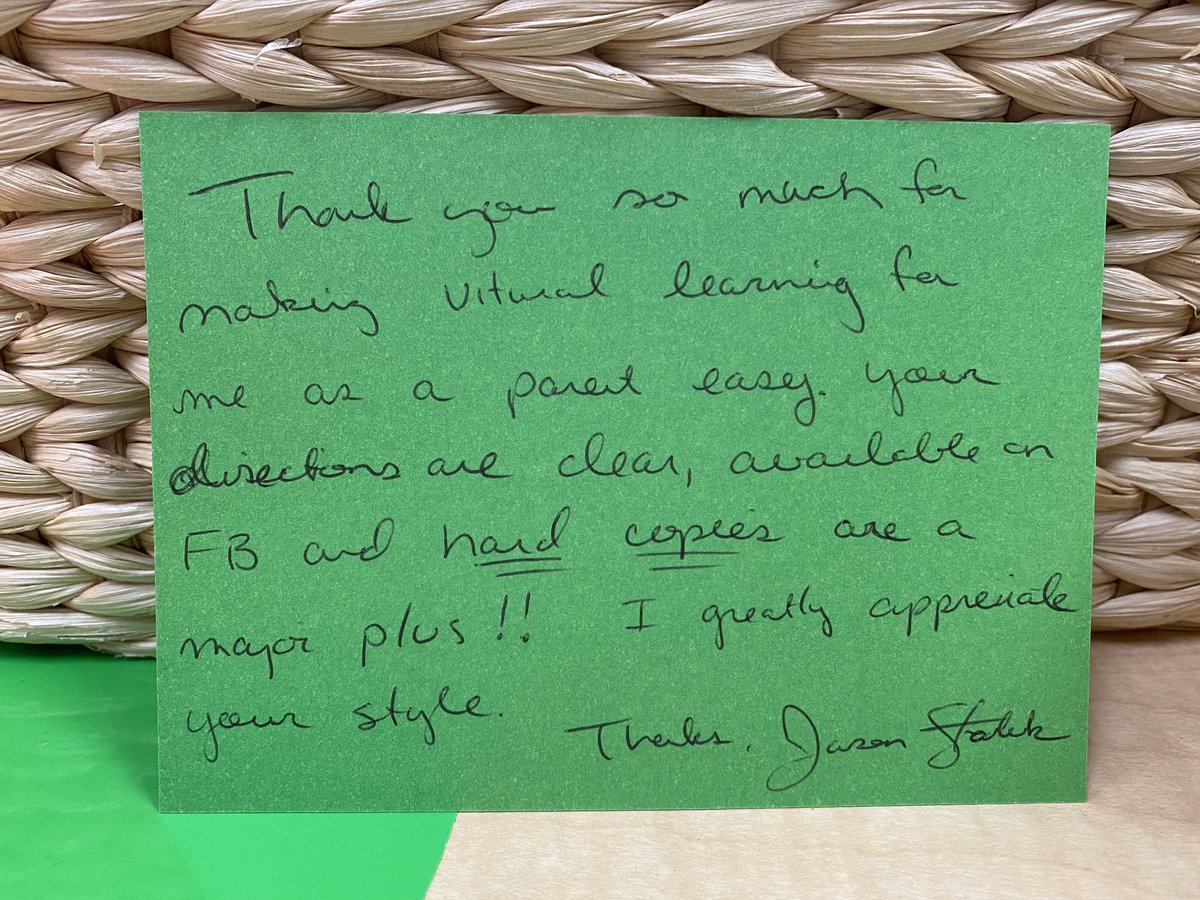 Thank you so much for
making vitural learnig for
me as a parent easy. your
directions are clear, available on
FB and hard copies are a
major plus!! I greatly appreciate
your style.
Thanks. Jason